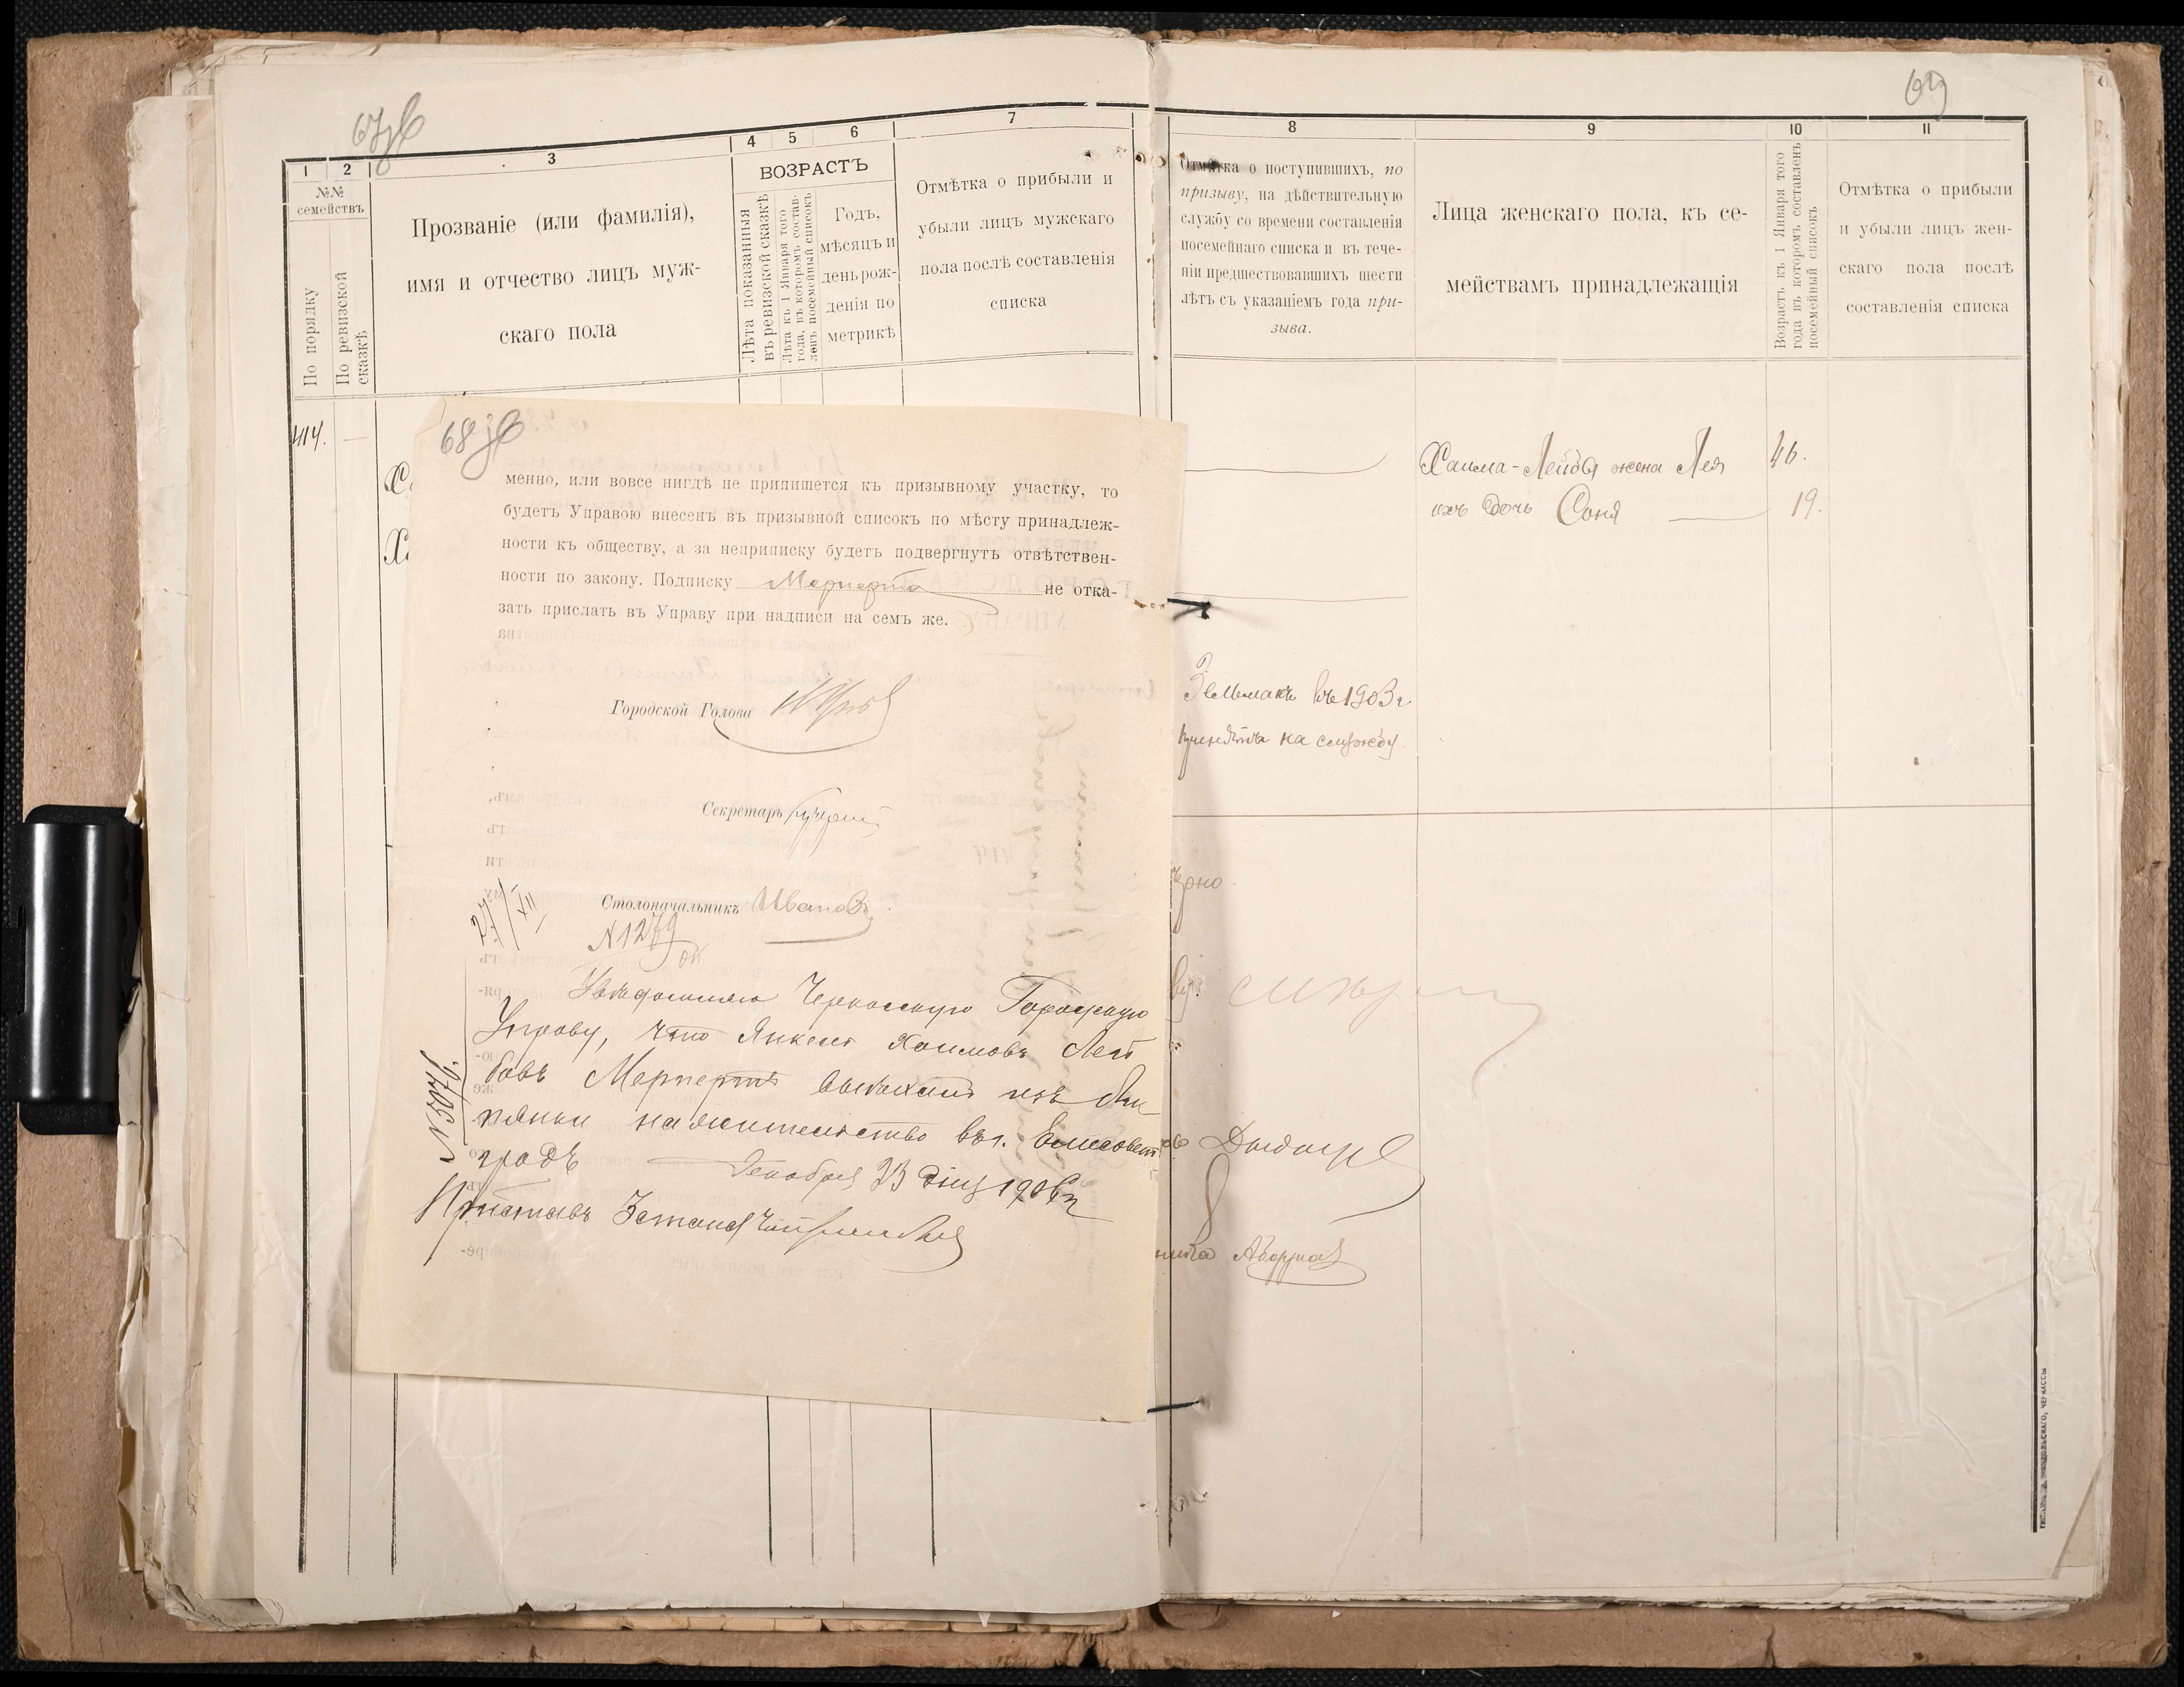 67об
69
1
2
3
4
5
6
7
№№ семействъ
По порядку
По ревизской сказкѣ
Прозваніе (или фамилія),
имя и отчество лицъ муж-
скаго пола
ВОЗРАСТЪ
Лѣта показанныя
въ ревизской сказкѣ
Лѣта къ 1 Января того
года, въ которомъ состав-
ленъ посемейный списокъ
Годъ,
мѣсяцъ и
день рож-
денія по
метрикѣ
Отмѣтка о прибыли и
убыли лицъ мужскаго
пола послѣ составленія
списка
414.
68об
менно, или вовсе нигдѣ не припишется къ призывному участку, то
будетъ Управою внесенъ въ призывной списокъ по мѣсту принадлеж-
ности къ обществу, а за неприписку будетъ подвергнутъ отвѣтствен-
ности по закону. Подписку Мерперта не отка-
зать прислать въ Управу при надписи на семъ же.
Городской Голова
Секретарь
Столоначальникъ Ивановъ
27/XII
N 1279
N 5076.
Увѣдомляю Черкасскую Городскую
Управу, что Янкель Хаимовъ Лей
бовъ Мерпертъ выѣхалъ изъ
на жительство въ г. Елисавет
градъ Декабря 23 дня 1906 г
Приставъ 3 стана
8
9
10
11
Отмѣтка о поступившихъ, по
призыву, на дѣйствительную
службу со времени составленія
посемейнаго списка и въ тече-
ніи предшествовавшихъ шести
лѣтъ съ указаніемъ года при-
зыва.
Лица женскаго пола, къ се-
мействамъ принадлежащія
Возрастъ къ 1 Января того
года въ которомъ составленъ
посемейный списокъ
Отмѣтка о прибыли
и убыли лицъ жен-
скаго пола послѣ
составленія списка
Хаима-Лейбы жена Лея 46.
ихъ дочь Соня 19.
въ 1903 г
принятъ на службу